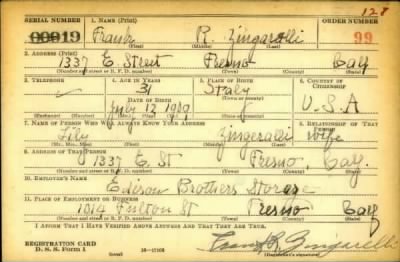 128
SERIAL NUMBER 1. NAME (Print) ORDER NUMBER
00019 Frank R. Zingarelli 99
(First) (Middle) (Last)
2. ADDRESS (Print)
1337 E Street Fresno Calif
(Number and street or R. F. D. number) (Town) (County) (State)
3. TELEPHONE 4. AGE IN YEARS 5. PLACE OF BIRTH 6. COUNTRY OF CITIZENSHIP
31 Italy
DATE OF BIRTH
July 12 1909 U.S.A
(Mo.) (Day) (Yr.) (State or country)
7. NAME OF PERSON WHO WILL ALWAYS KNOW YOUR ADDRESS 8. RELATIONSHIP OF THAT PERSON
Lily Zingeralli wife
(Mr., Mrs., Miss) (First) (Middle) (Last)
9. ADDRESS OF THAT PERSON
1337 E. St Fresno, Calif.
(Number and street or R. F. D. number) (Town) (County) (State)
10. EMPLOYER'S NAME
Edison Brothers Stores
11. PLACE OF EMPLOYMENT OR BUSINESS
1014 Fulton St Fresno Calif
(Number and street or R. F. D. number) (Town) (County) (State)
I AFFIRM THAT I HAVE VERIFIED ABOVE ANSWERS AND THAT THEY ARE TRUE.
REGISTRATION CARD
D. S. S. Form 1 (over) Frank R Zingarelli
(Registrant's signature)